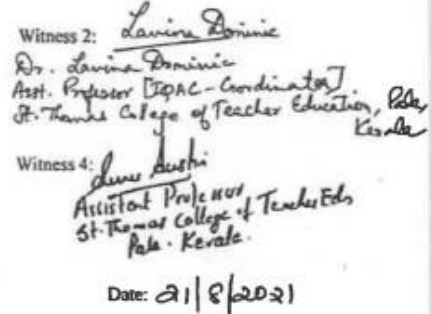 Witness 2: Lavina Dominic
Dr. Lavina Dominic
Asst. Professor [IQAC - Coordinator]
St. Thomas College of Teacher Education, Pala,
Kerala
Witness 4:
Assistant Professor
St. Thomas College of Teacher Edn
Pala. Kerala.
Date: 21/8/2021